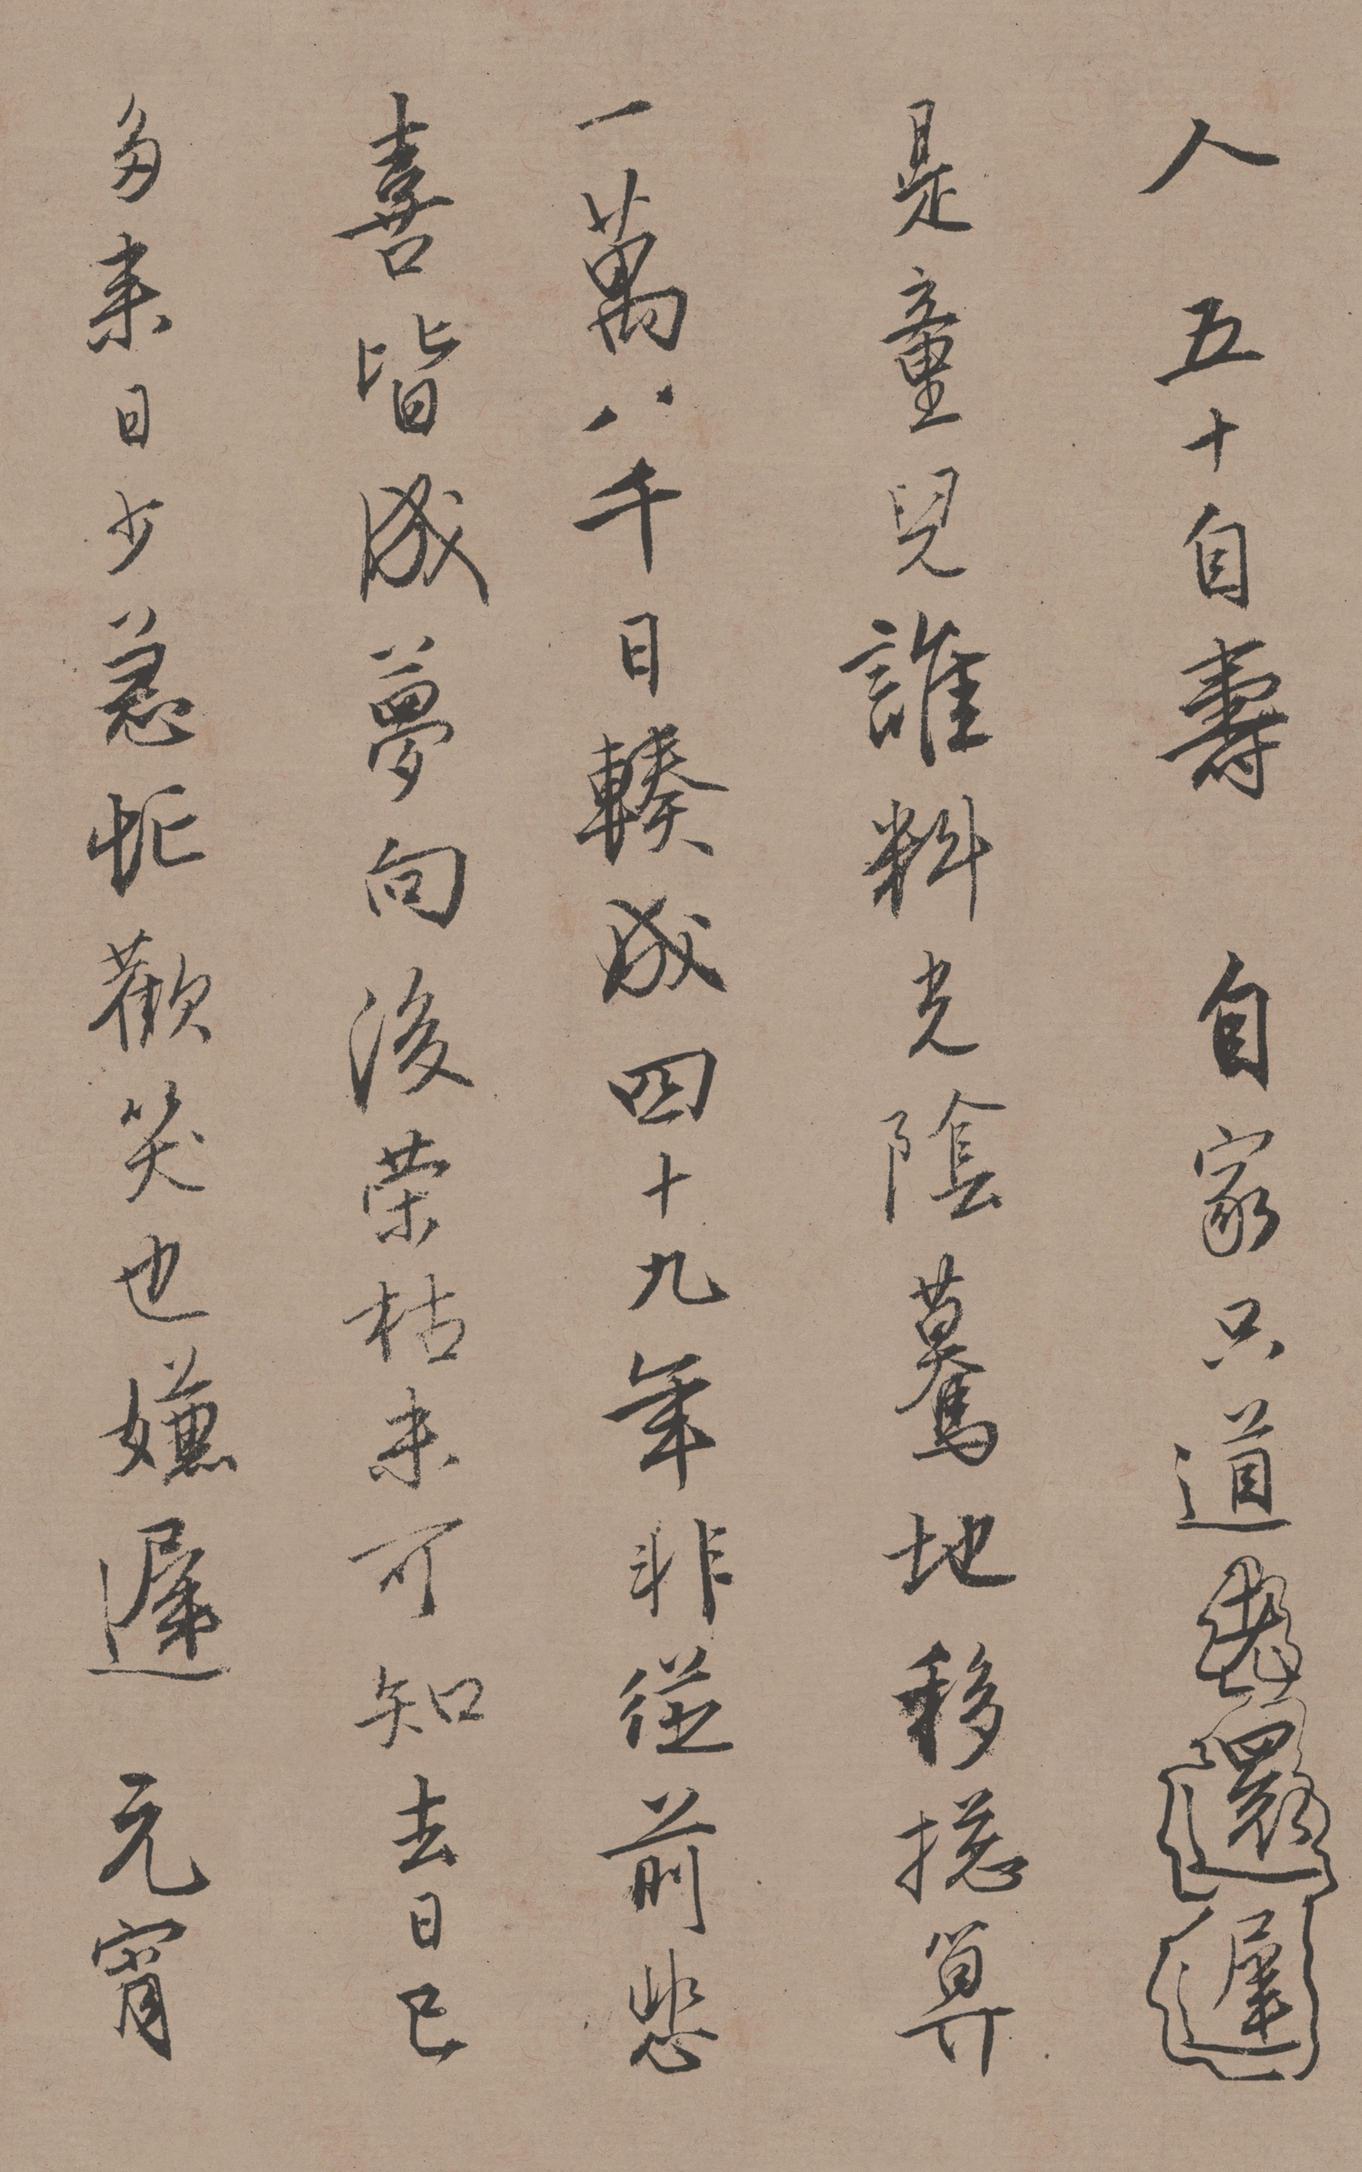 人 五十自壽 自家只道老還遲
是童兒誰料光陰驀地移揔算
一萬八千日輳成四十九年非從前悲
喜皆成夢向後荣枯未可知去日已
多来日少急忙歡笑也嫌遲 元宵